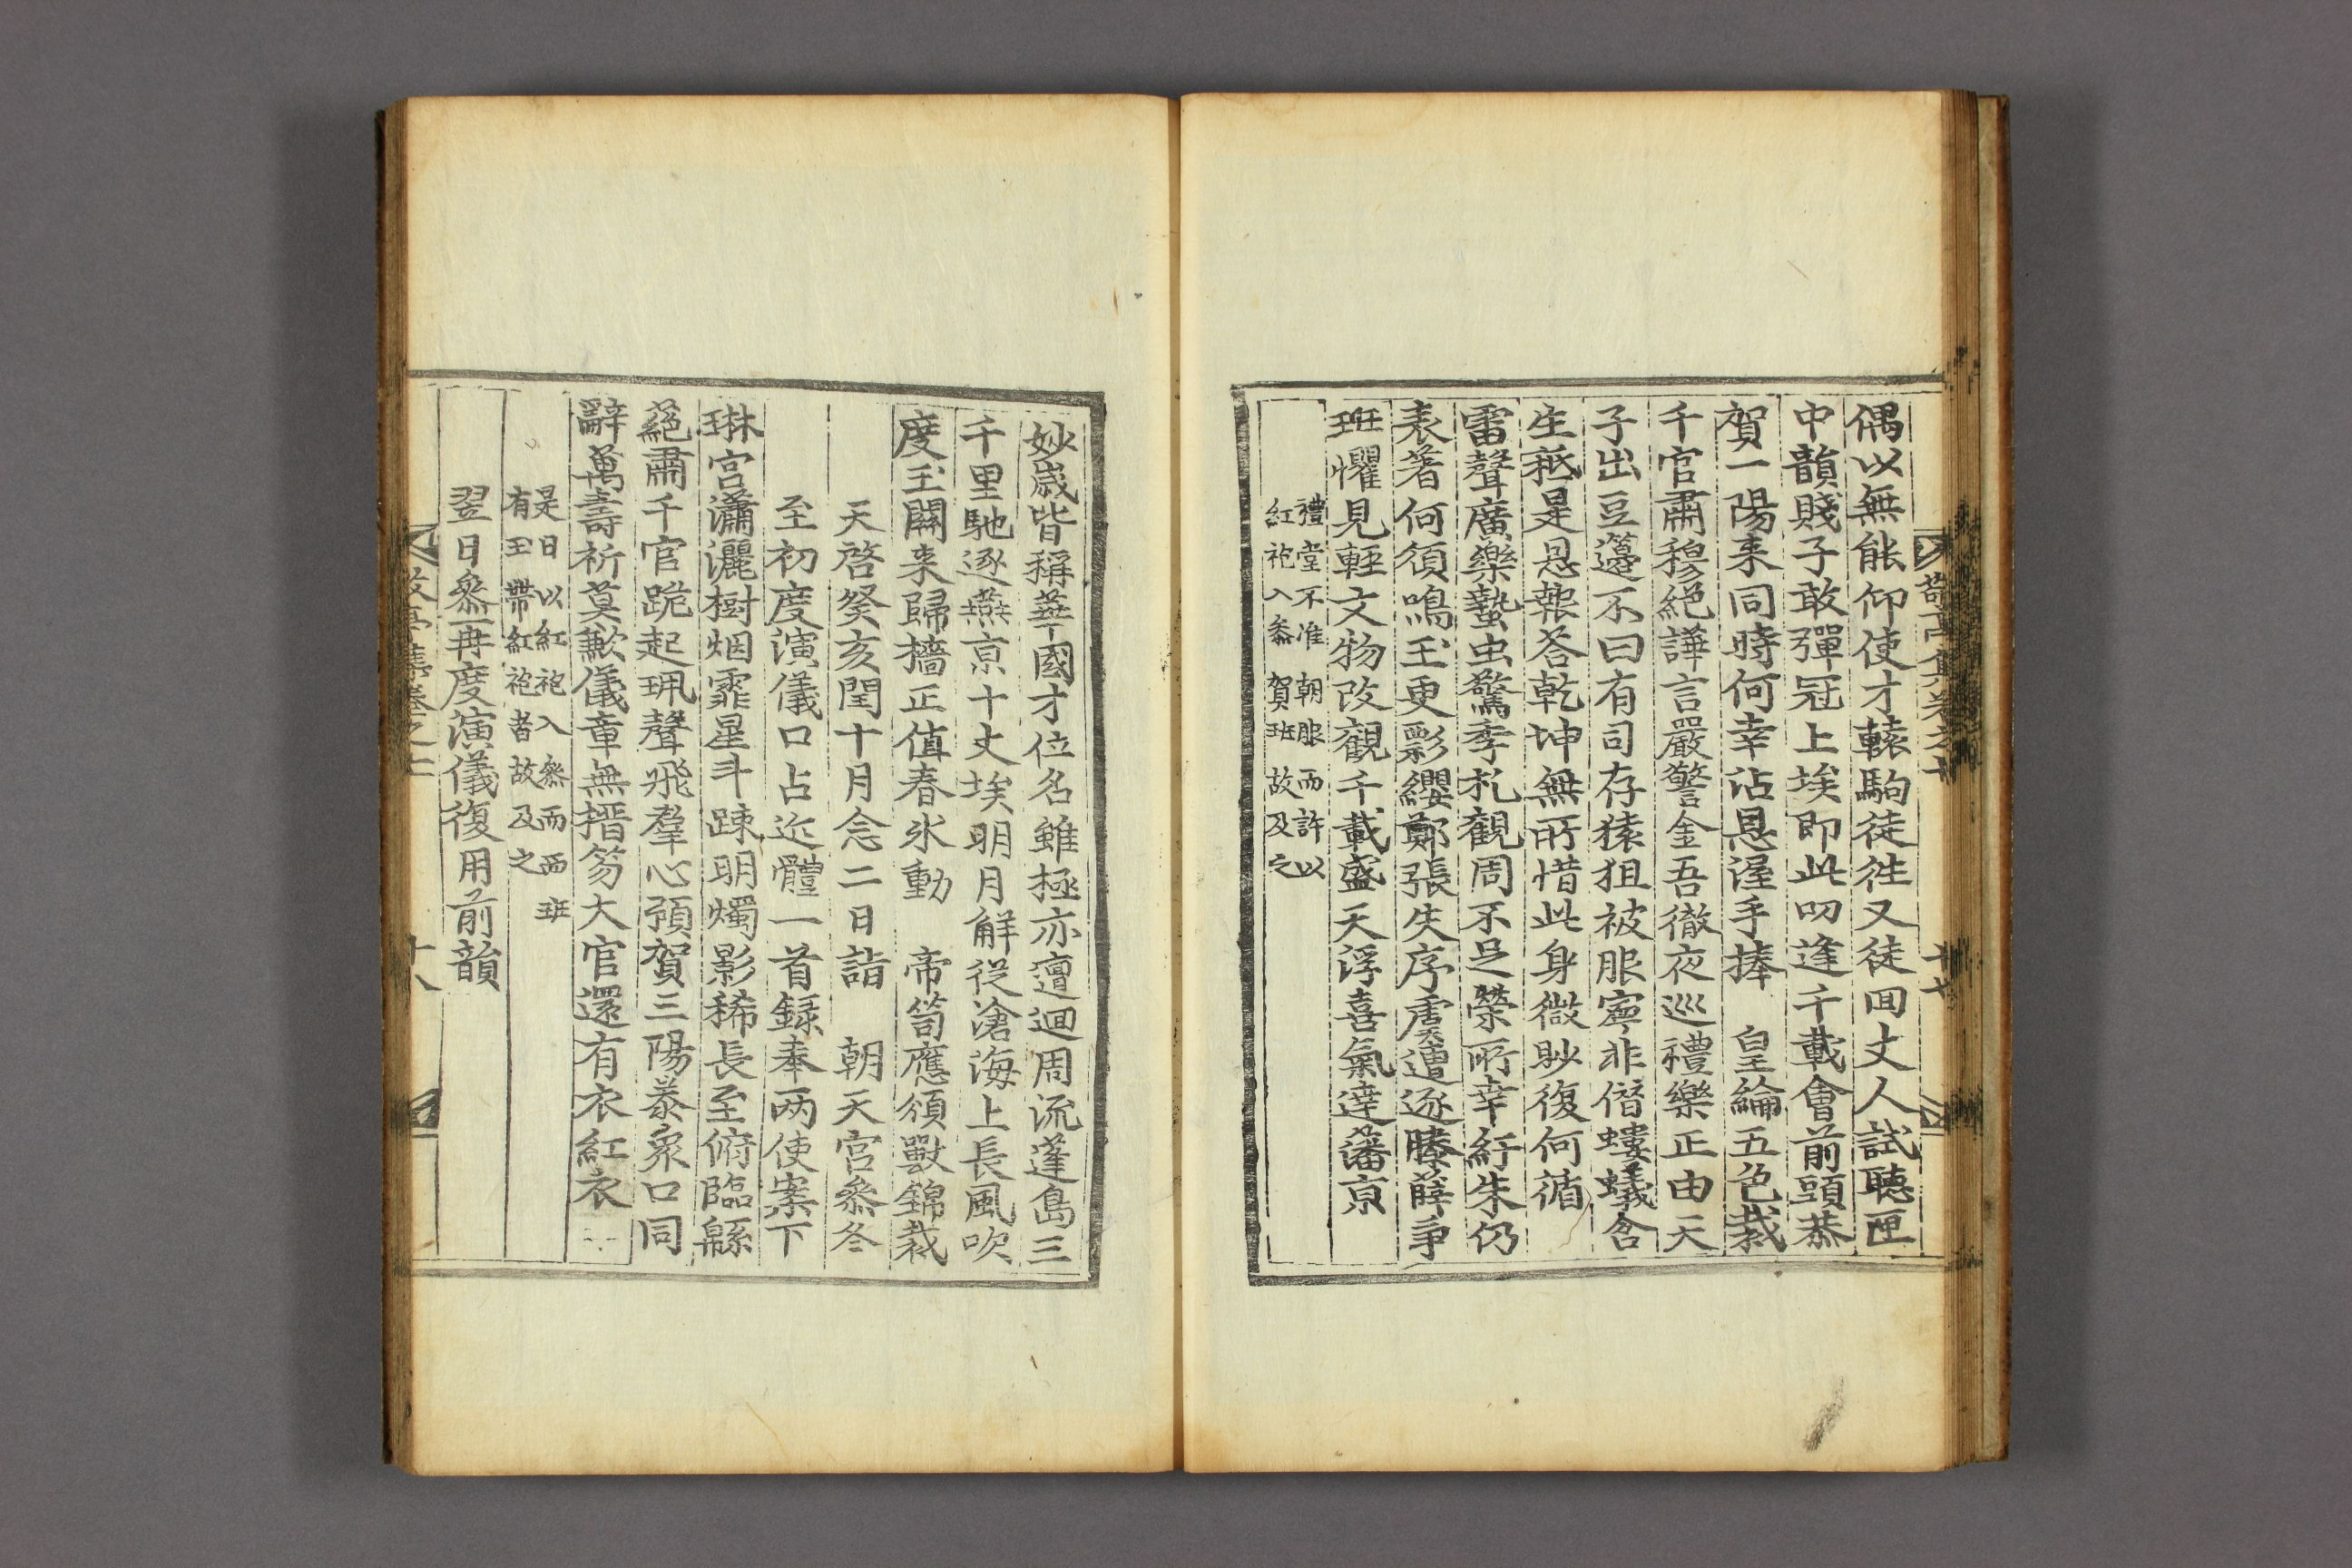 偶以無能仰使才轅駒徒徃又徒回丈人試聽匣
中韻賤子敢彈冠上埃即此叨逢千載會前頭恭
賀一陽来同時何幸沾恩渥手捧　皇綸五色裁
千官肅穆絕譁言嚴警金吾徹夜巡禮樂正由天
子出豆籩不曰有司存猿狙被服寧非僭螻蟻含
生秪是恩報答乾坤無所惜此身微眇復何循
雷聲廣樂蟄虫驚季札觀周不足榮所幸紆朱仍
表著何須鳴玉更影纓鄭張失序虞遭逐滕薛爭
班懼見輕文物改觀千載盛天浮喜氣達藩京
禮堂不准朝服而許以
紅袍入叅賀班故及之
妙歲皆稱華國才位名雖極亦邅迴周流蓬島三
千里馳逐燕京十丈埃明月觧從滄海上長風吹
度玉關来歸檣正值春氷動　帝笥應須獸錦裁
天啓癸亥閏十月念二日詣　朝天宮叅冬
至初度演儀口占近體一首録奉两使案下
琳宮瀟灑樹烟霏星斗踈明燭影稀長至俯臨緜
蕝肅千官跪起珮聲飛羣心預賀三陽泰衆口同
辭萬壽祈莫歉儀章無搢笏大官還有衣紅衣
是日以紅袍入叅而西班
有玉帶紅袍者故及之
翌日叅再度演儀復用前韻
十八